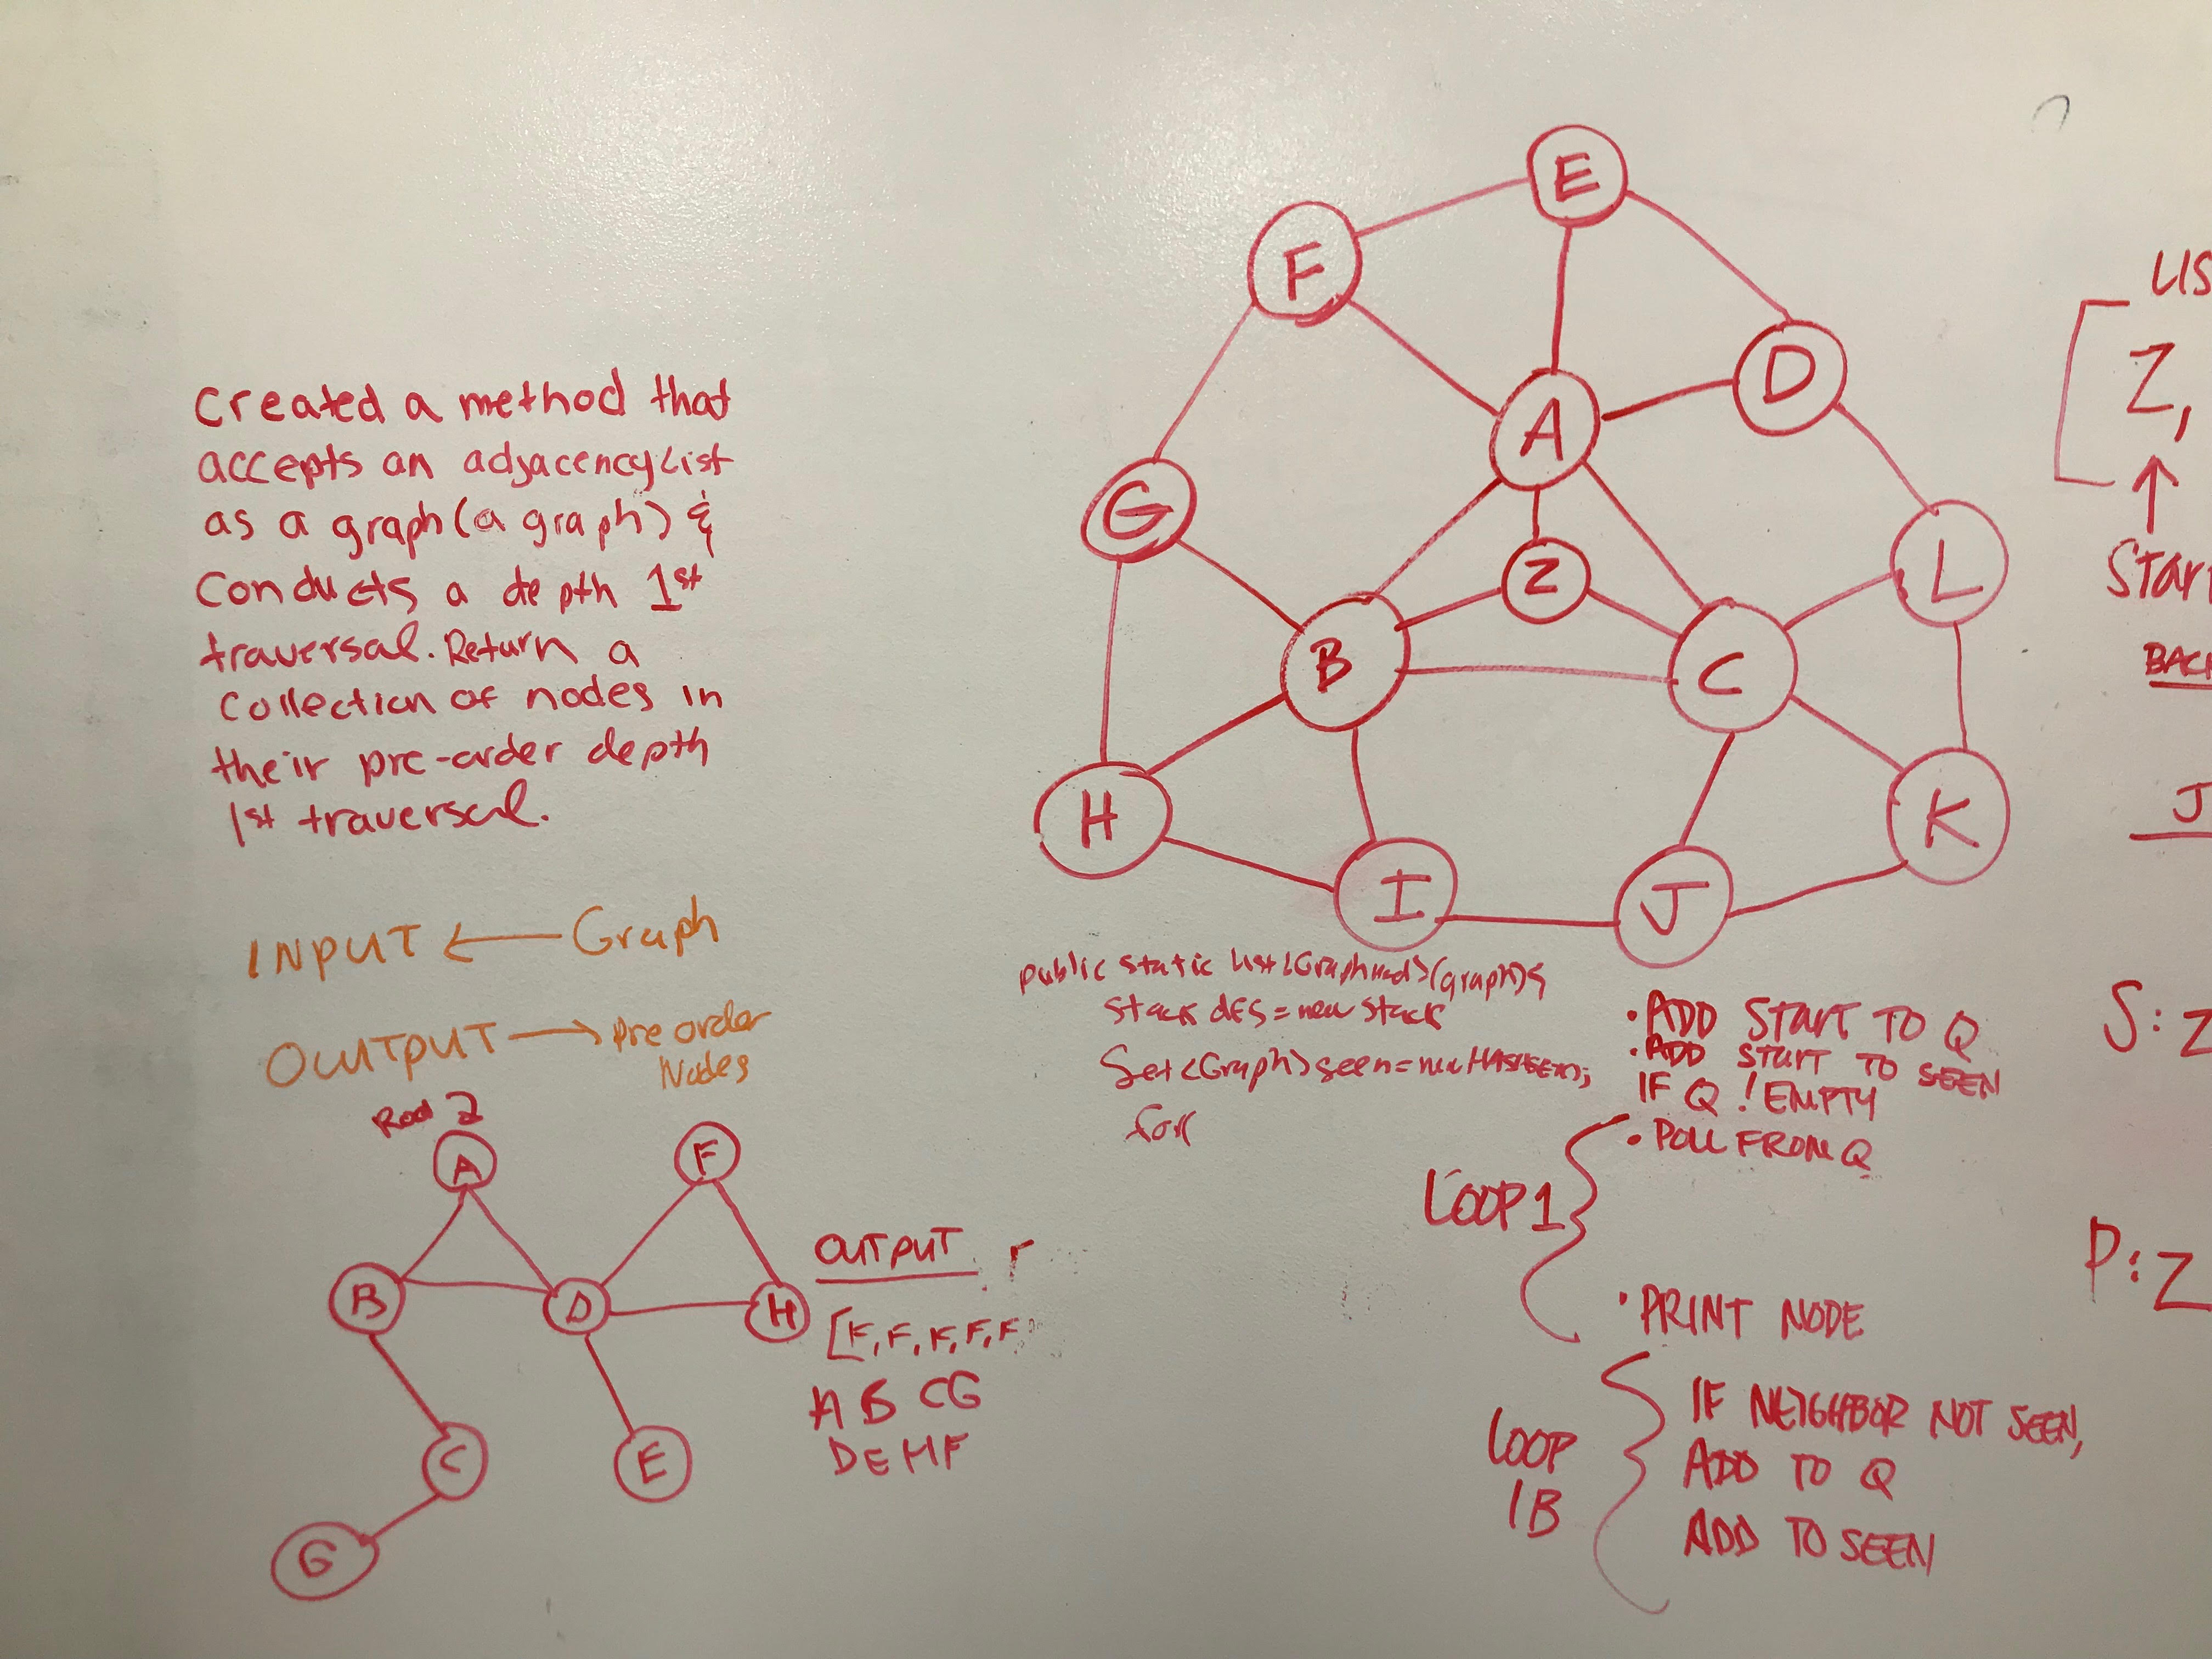 Created a method that
accepts an adjacencyList
as a graph (a graph) &
Conducts a depth 1st
traversal. Return a
Collection of nodes in
their pre-order depth
1st traversal.
INPUT ← Graph
OUTPUT → Pre order
Nodes
A
F
B
D
H
C
E
G
OUTPUT
A B C G
D E H F
E
F
D
A
G
Z
L
B
C
H
K
I
J
public static List (graph){
Stack dfs = new Stack
Set<Graph> seen = new
for(
• ADD START TO Q
• ADD START TO SEEN
IF Q ! EMPTY
• POLL FROM Q
LOOP 1
• PRINT NODE
LOOP
1B
IF NEIGHBOR NOT SEEN,
ADD TO Q
ADD TO SEEN
LIS
Z,
↑
START
BACK
J
S: Z
P: Z